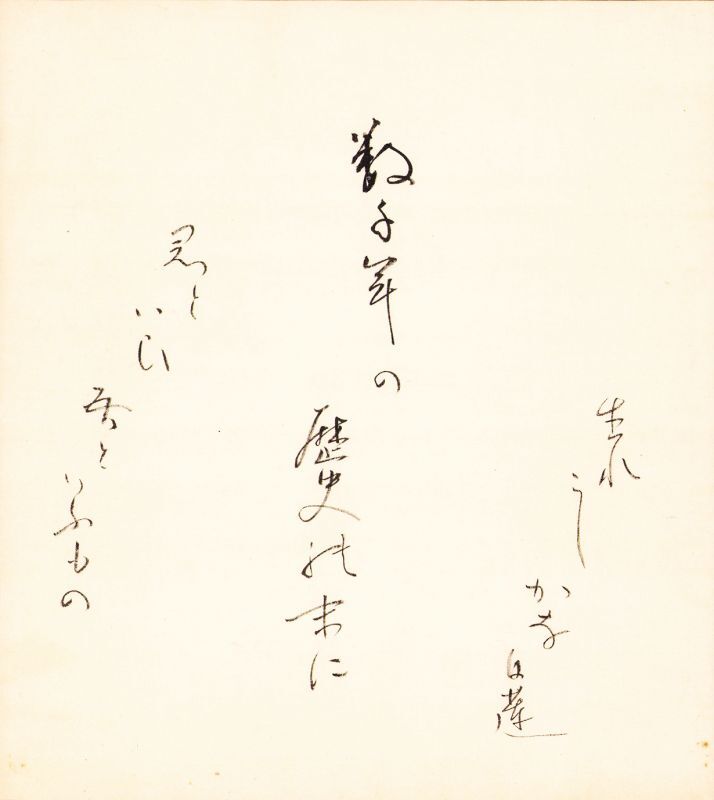 数千年の
歴史の末に
君と
いひ
吾と
いふもの
生れ
こし
かな
白蓮